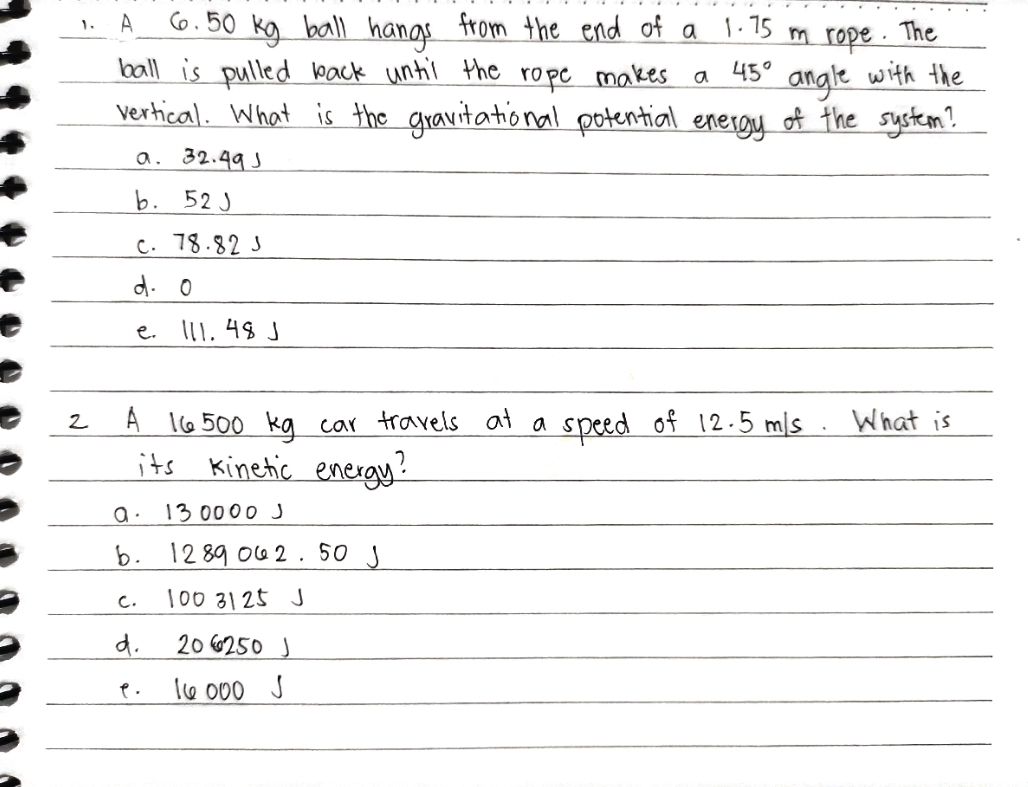 1. A 6.50 kg ball hangs from the end of a 1.75 m rope. The
ball is pulled back until the rope makes a 45° angle with the
vertical. What is the gravitational potential energy of the system?
a. 32.49 J
b. 52 J
c. 78.82 J
d. 0
e. 111.48 J
2 A 16500 kg car travels at a speed of 12.5 m/s. What is
its kinetic energy?
a. 130000 J
b. 1289062.50 J
c. 1003125 J
d. 206250 J
e. 16000 J